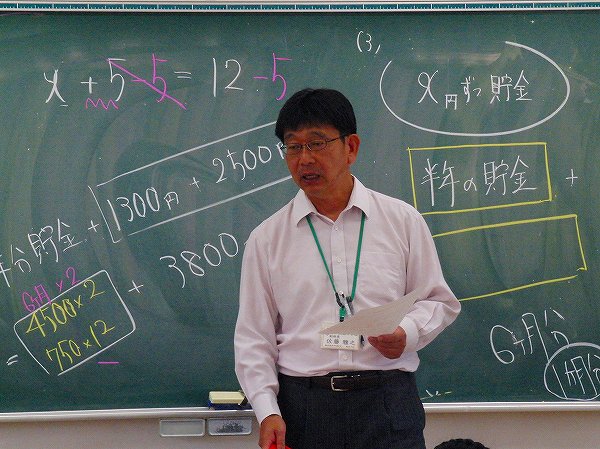 x + 5 - 5 = 12 - 5
(3)
x円ずつ貯金
半年の貯金 +
年分貯金 + 1300円 + 2500円
+ 3800
6ヶ月×2
4500×2
= 750×12
6ヶ月分
1ヶ月
佐藤